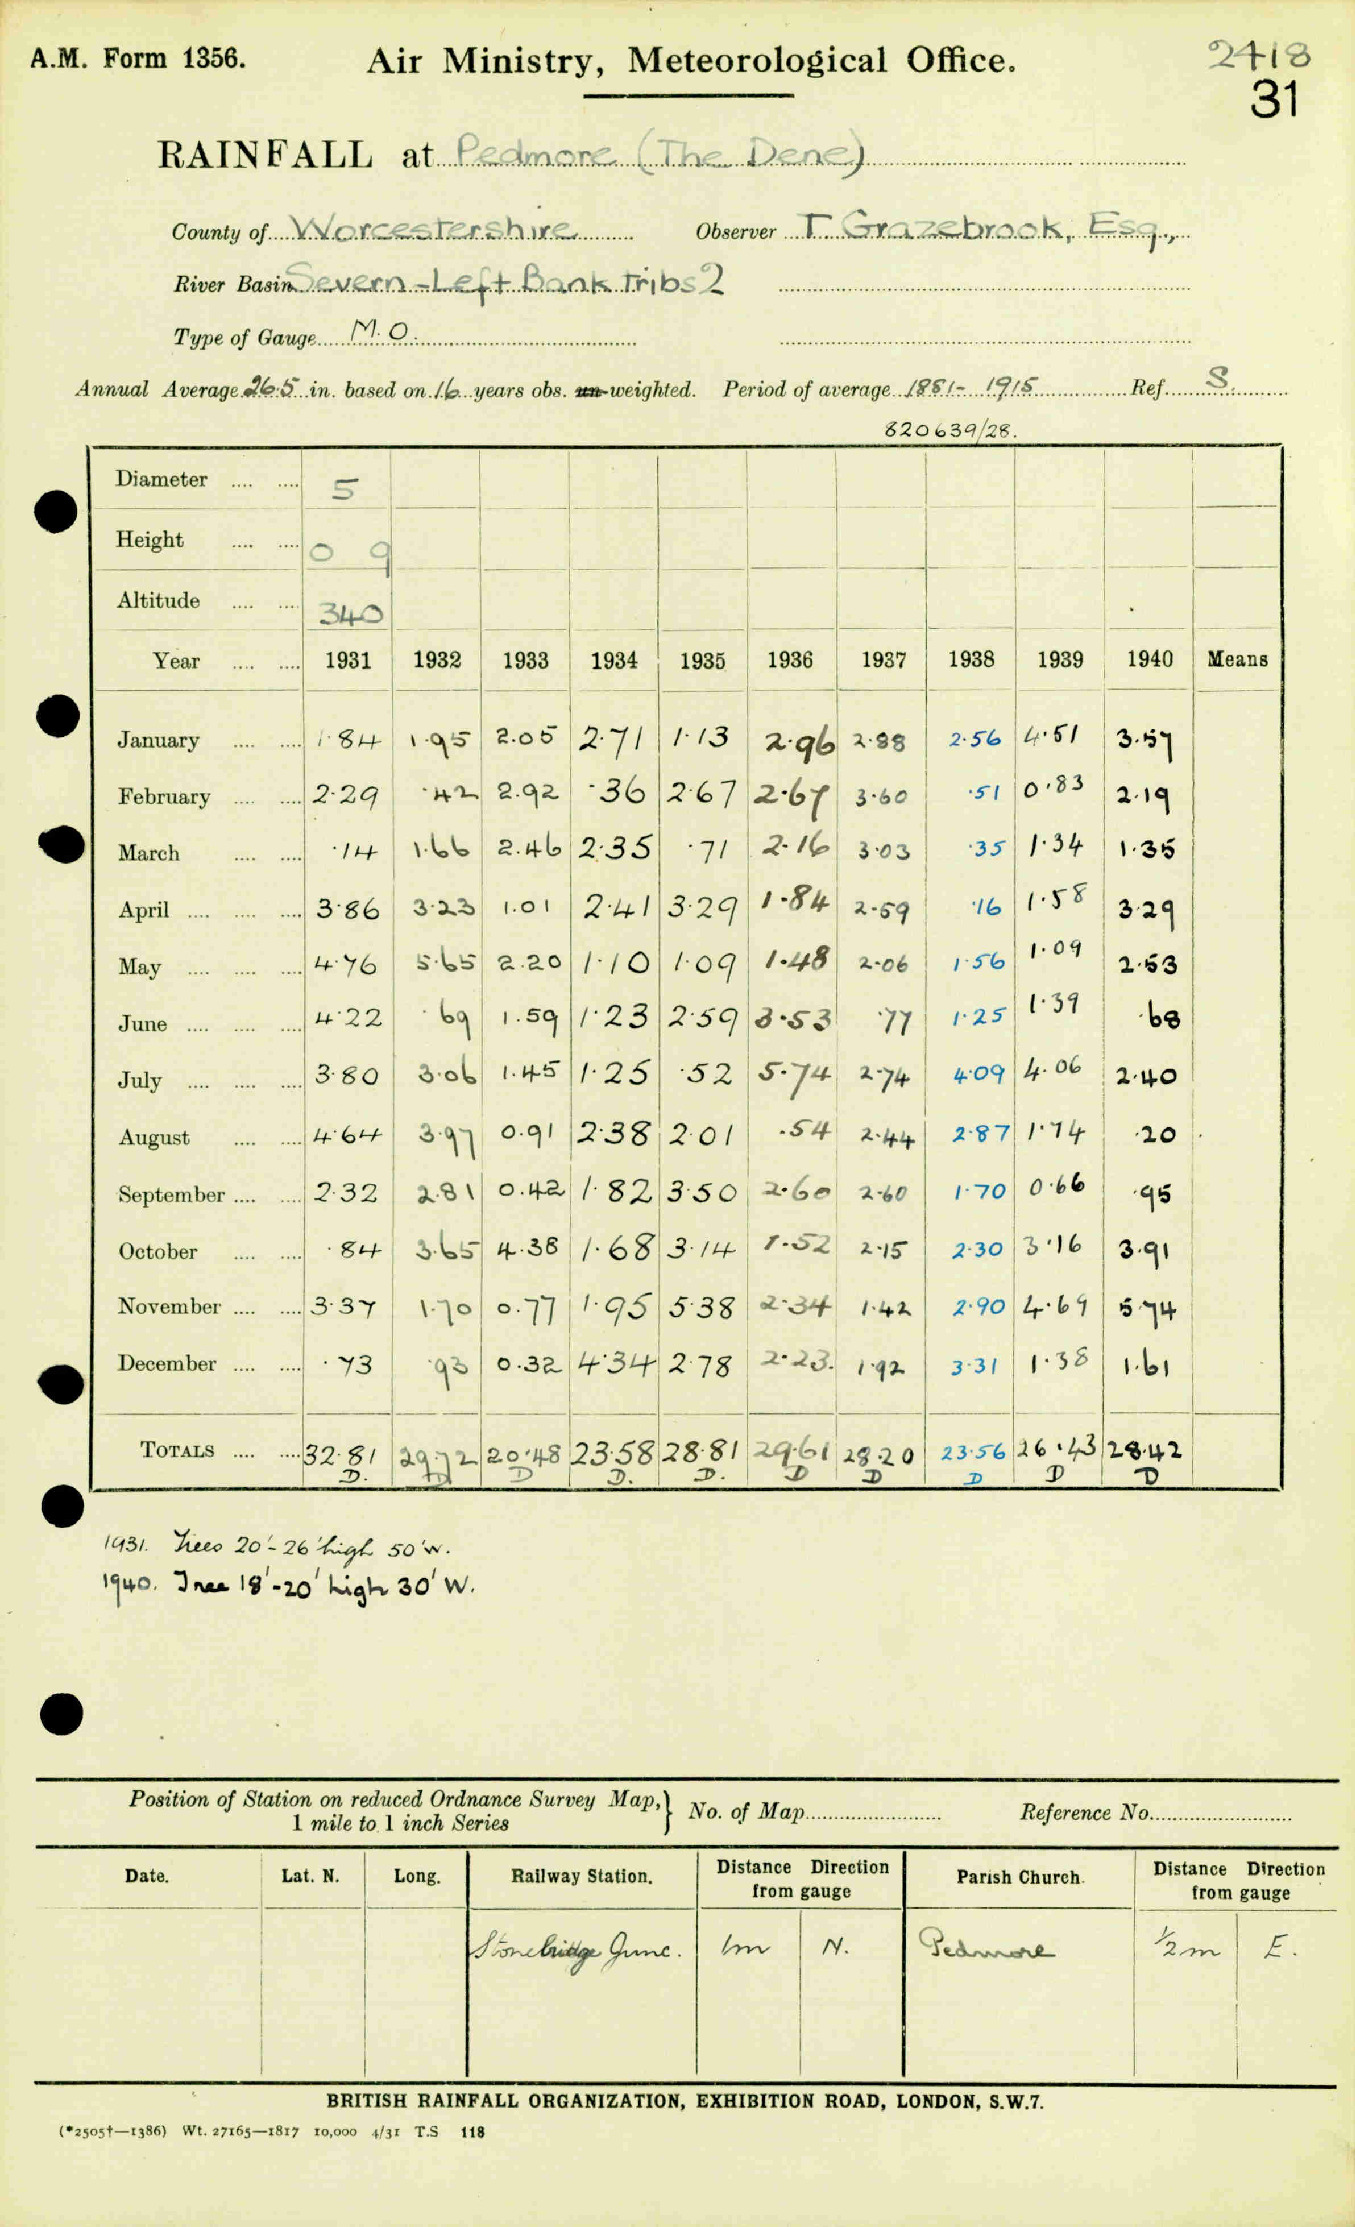 A.M. Form 1356. Air Ministry, Meteorological Office. 2418
31
RAINFALL at Pedmore (The Dene)
County of Worcestershire Observer T Grazebrook, Esq.,
River Basin Severn-Left Bank Tribs 2
Type of Gauge M.O.
Annual Average 26.5 in. based on 16 years obs. un-weighted. Period of average 1881-1915 Ref. S.
820639/28.
Diameter .... .... 5
Height .... .... 0 9
Altitude .... .... 340
Year .... .... 1931 1932 1933 1934 1935 1936 1937 1938 1939 1940 Means
January .... .... 1.84 1.95 2.05 2.71 1.13 2.96 2.88 2.56 4.51 3.57
February .... .... 2.29 .42 2.92 .36 2.67 2.67 3.60 .51 0.83 2.19
March .... .... .14 1.66 2.46 2.35 .71 2.16 3.03 .35 1.34 1.35
April .... .... .... 3.86 3.23 1.01 2.41 3.29 1.84 2.59 .16 1.58 3.29
May .... .... .... 4.76 5.65 2.20 1.10 1.09 1.48 2.06 1.56 1.09 2.53
June .... .... .... 4.22 .69 1.59 1.23 2.59 3.53 .77 1.25 1.39 .68
July .... .... .... 3.80 3.06 1.45 1.25 .52 5.74 2.74 4.09 4.06 2.40
August .... .... 4.64 3.97 0.91 2.38 2.01 .54 2.44 2.87 1.74 .20
September .... .... 2.32 2.81 0.42 1.82 3.50 2.60 2.60 1.70 0.66 .95
October .... .... .84 3.65 4.38 1.68 3.14 1.52 2.15 2.30 3.16 3.91
November .... .... 3.37 1.70 0.77 1.95 5.38 2.34 1.42 2.90 4.69 5.74
December .... .... .73 .93 0.32 4.34 2.78 2.23. 1.92 3.31 1.38 1.61
TOTALS .... .... 32.81 29.72 20.48 23.58 28.81 29.61 28.20 23.56 26.43 28.42
D. D D D. D. D D D D D
1931. Trees 20'-26' high 50' W.
1940. Tree 18'-20' high 30' W.
Position of Station on reduced Ordnance Survey Map, } No. of Map Reference No.
1 mile to 1 inch Series
Date. Lat. N. Long. Railway Station. Distance Direction from gauge Parish Church. Distance Direction from gauge
Stonebridge Junc. 1m N. Pedmore ½m E.
BRITISH RAINFALL ORGANIZATION, EXHIBITION ROAD, LONDON, S.W.7.
(*2505†—1386) Wt. 27165—1817 10,000 4/31 T.S 118